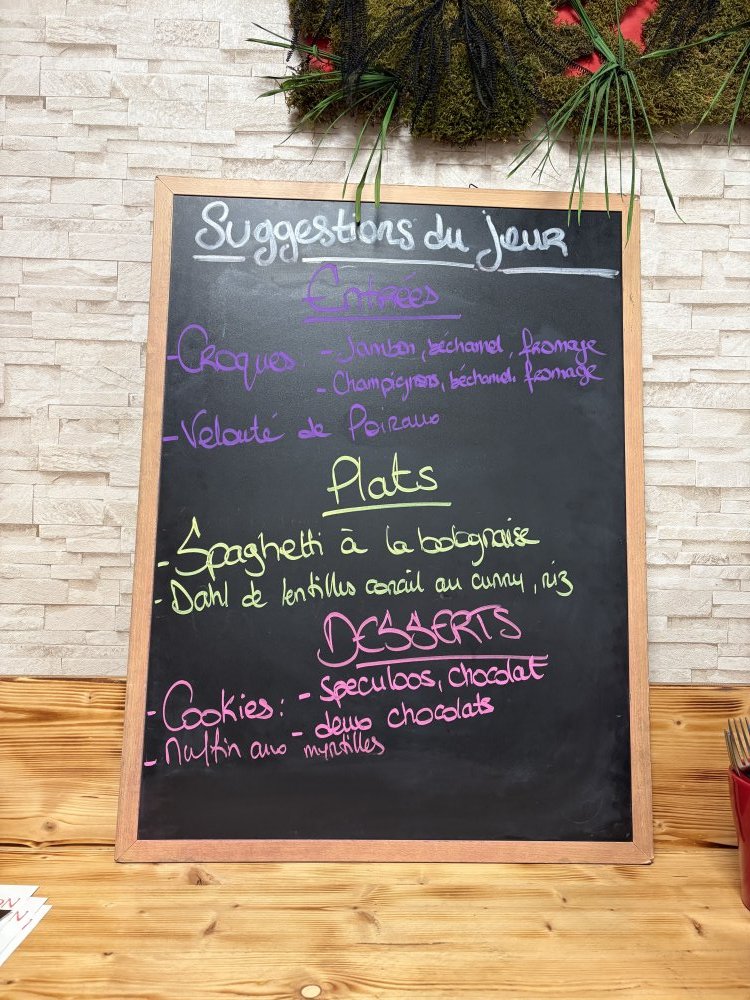 Suggestions du jour
Entrées
- Croques - Jambon, béchamel, fromage
- Champignons, béchamel, fromage
- Velouté de Poireaux
Plats
- Spaghetti à la bolognaise
- Dahl de lentilles corail au curry, riz
DESSERTS
- Cookies: - speculoos, chocolat
- deux chocolats
- Muffin aux myrtilles